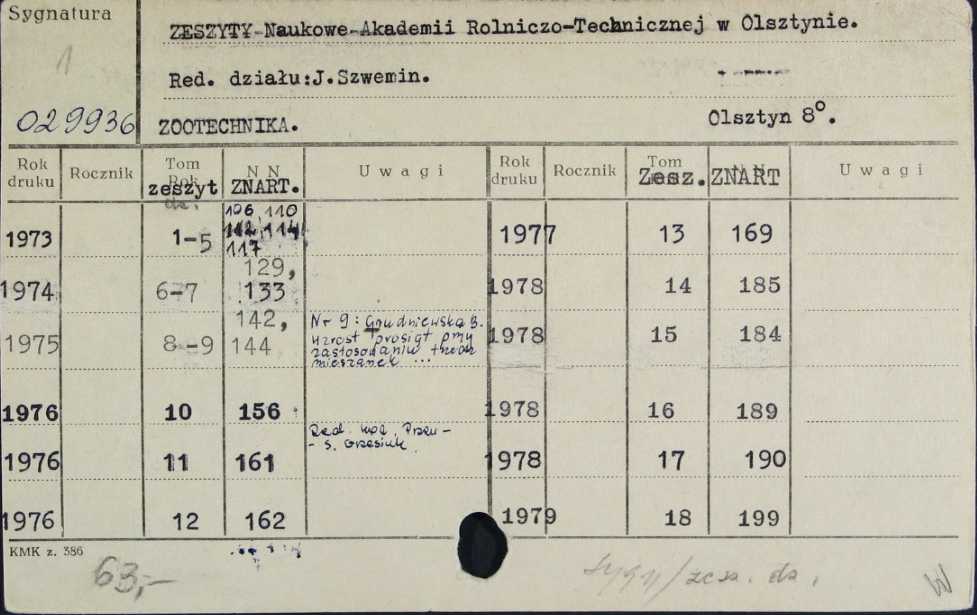 Sygnatura
1
029936
ZESZYTY Naukowe Akademii Rolniczo-Technicznej w Olsztynie.
Red. działu:J.Szwemin.
ZOOTECHNIKA.
Olsztyn 8°.
Rok druku Rocznik Tom zeszyt N N ZNART. Uwagi Rok druku Rocznik Tom Zesz. ZNART Uwagi
1973 1-5 106, 110 112, 114, 117 1977 13 169
1974 6-7 129, 133 1978 14 185
1975 8-9 142, 144 Nr 9: Grudniewska B. Wzrost prosiąt przy mieszanek ... 1978 15 184
1976 10 156 1978 16 189
1976 11 161 Red. - s. Grzesiuk 1978 17 190
1976 12 162 1979 18 199
KMK z. 386
63,-